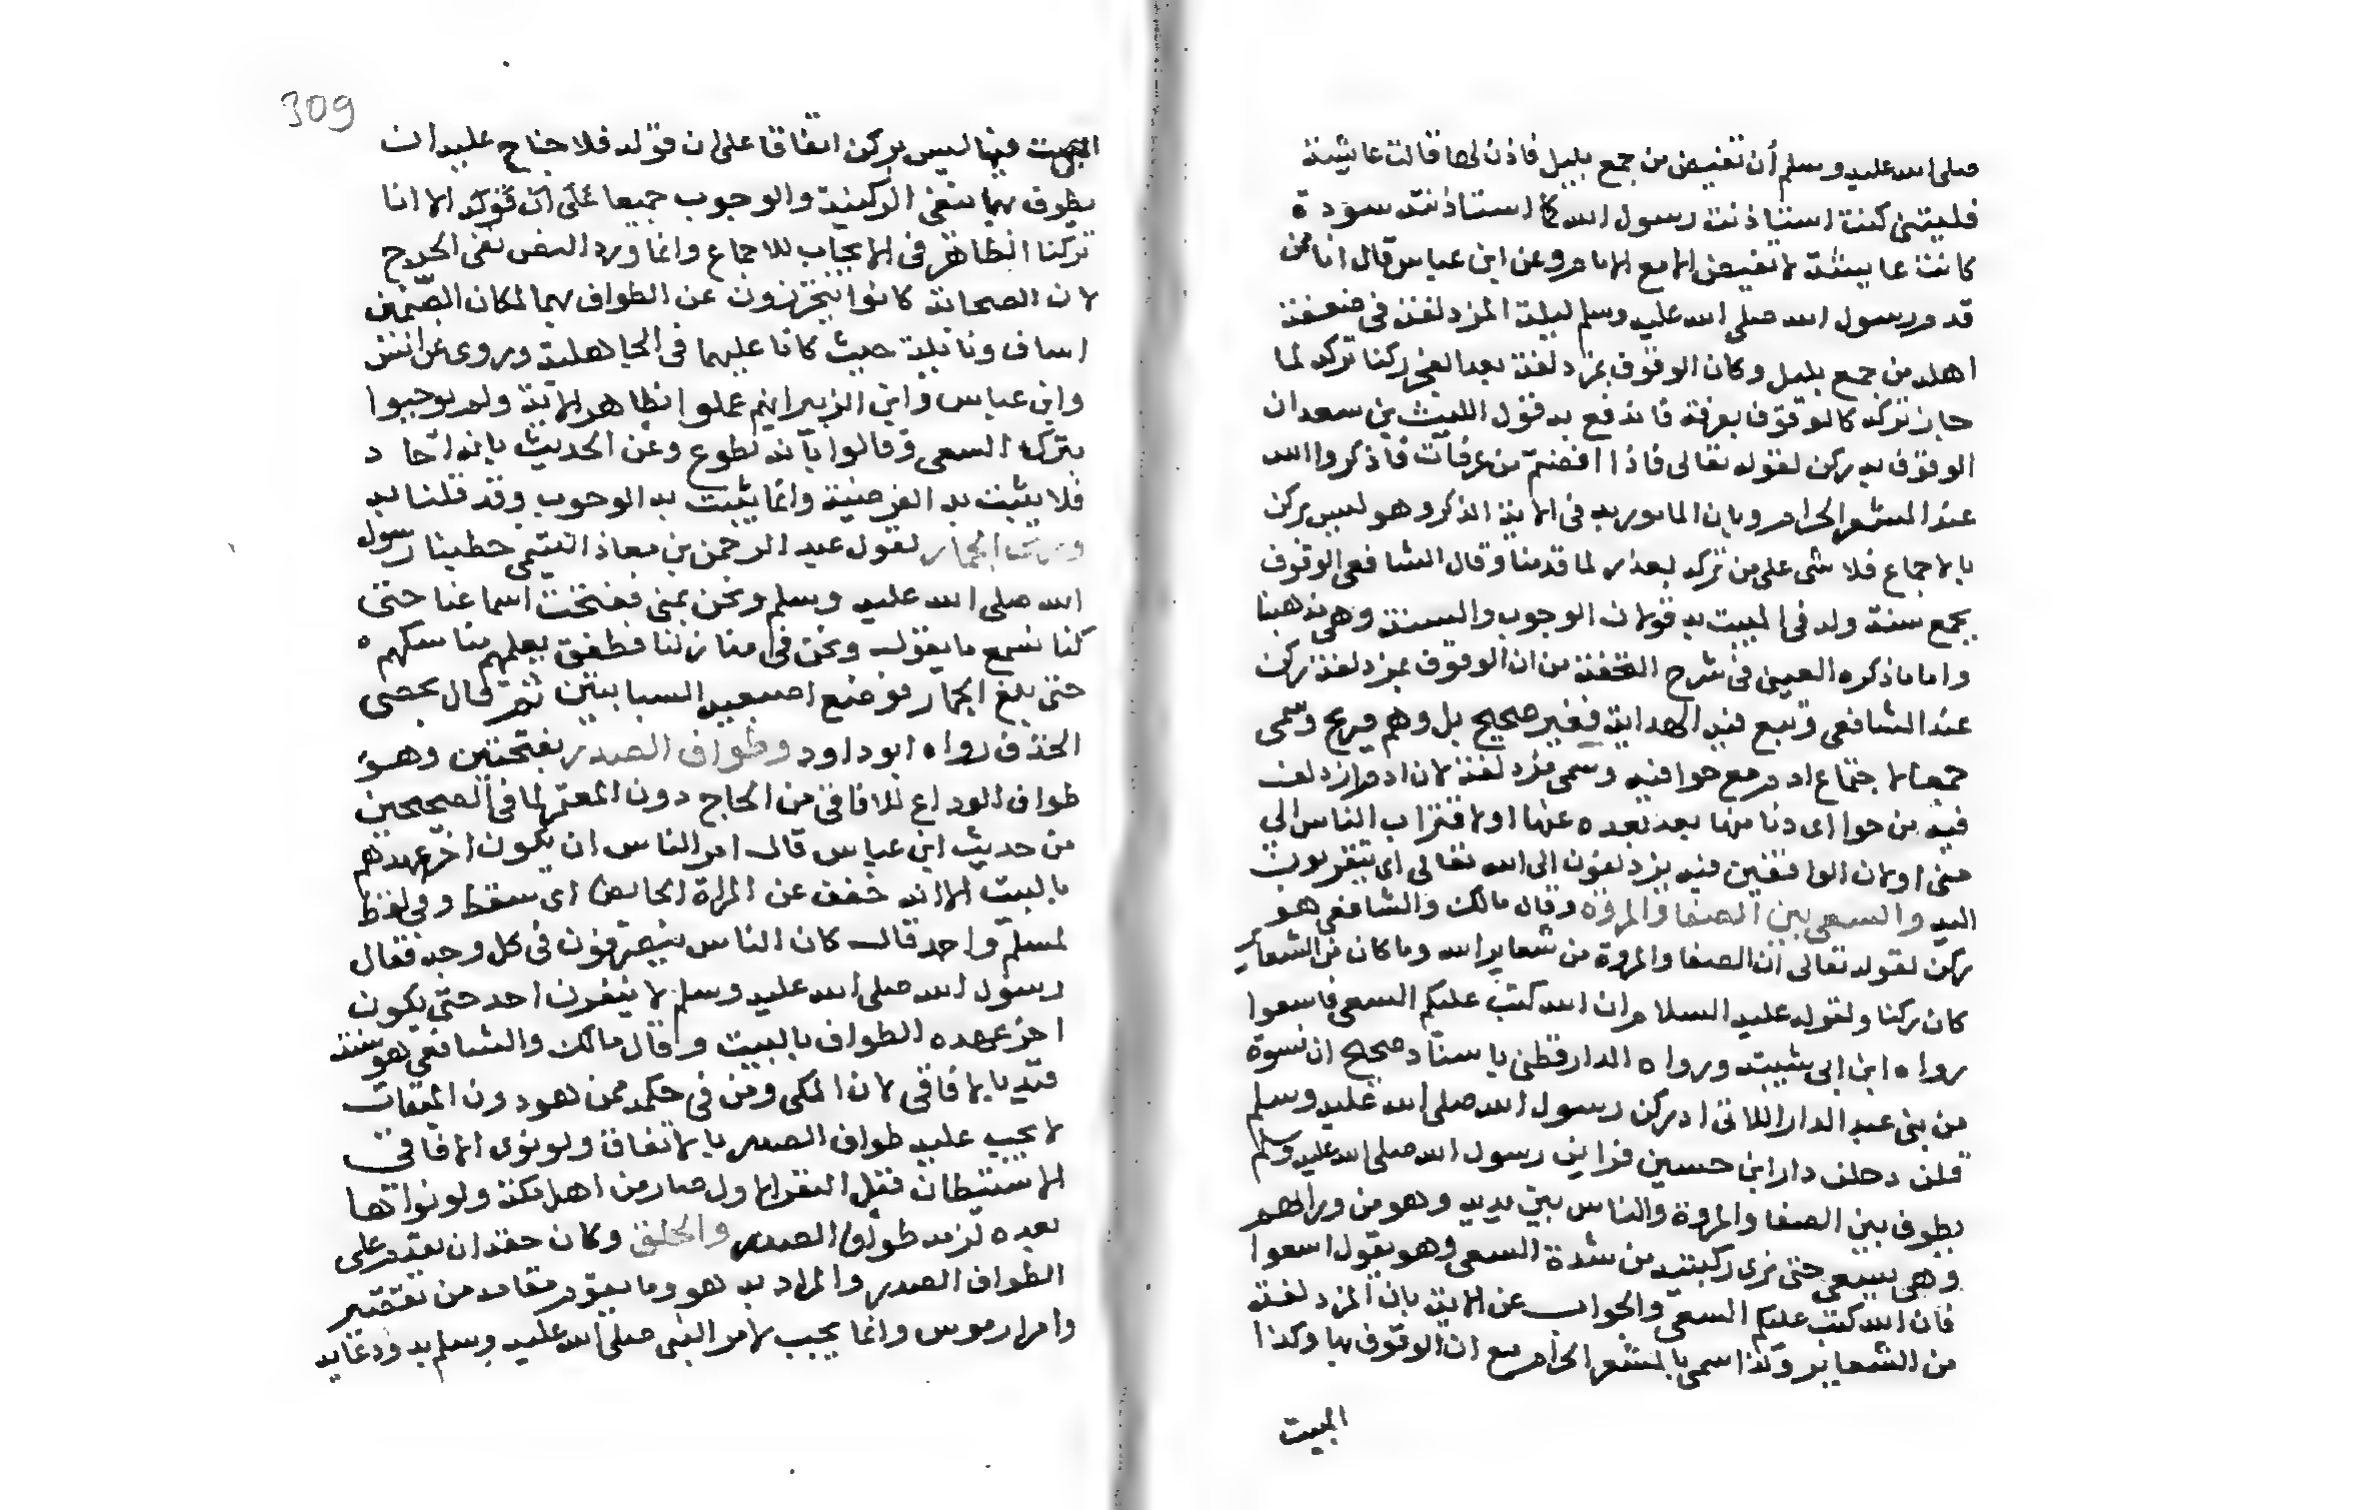 صلى الله عليه وسلم أن تفيض من جمع بليل فاذن لها قالت عائشة
فليتني كنت استاذنت رسول الله كما استاذنته سودة
كانت عايشة لا تفيض الا مع الامام وعن ابن عباس قال انا ممن
قدم رسول الله صلى الله عليه وسلم ليلة المزدلفة في ضعفة
اهله من جمع بليل وكان الوقوف بمزدلفة بعد الفجر ركنا تركه لما
جاز تركه كالوقوف بعرفة فاندفع به قول الليث بن سعد ان
الوقوف به ركن لقوله تعالى فاذا افضتم من عرفات فاذكروا الله
عند المشعر الحرام وبان المامور به في الاية الذكر وهو ليس بركن
بالاجماع فلا شى على من تركه بعذر لما قدمنا وقال الشافعي الوقوف
بجمع سنة وله في المبيت به قولان الوجوب والسنة وهي مذهبنا
واما ما ذكره العيني في شرح التحفة من ان الوقوف بمزدلفة ركن
عند الشافعي وتبع فيه الهداية فغير صحيح بل وهم صريح وسمى
جمعا لاجتماع ادم مع حوا فيه وسمى مزدلفة لان ادم ازدلف
فيه من حوا اى دنا منها بعد بعده عنها او لاقتراب الناس الى
منى او لان الواقفين فيه يزدلفون الى الله تعالى اى يتقربون
اليه والسعى بين الصفا والمروة وقال مالك والشافعي هو
ركن لقوله تعالى ان الصفا والمروة من شعاير الله وما كان من الشعاير
كان ركنا ولقوله عليه السلام ان الله كتب عليكم السعى فاسعوا
رواه ابن ابى شيبة ورواه الدارقطني باسناد صحيح ان نسوة
من بنى عبد الدار اللاتى ادركن رسول الله صلى الله عليه وسلم
قلن دخلن دار ابن حسين فراين رسول الله صلى الله عليه وسلم
يطوف بين الصفا والمروة والناس بين يديه وهو من ورائهم
وهى يسعى حتى نرى ركبتيه من شدة السعى وهو يقول اسعوا
فان الله كتب عليكم السعى والجواب عن الاية بان المزدلفة
من الشعاير ولذا سمى بالمشعر الحرام مع ان الوقوف بها وكذا
المبيت
309
المبيت فيها ليس بركن اتفاقا على ان قوله فلا جناح عليه ان
يطوف بهما ينفى الركنية والوجوب جميعا على ان قوله الا انا
تركنا الظاهر فى الايجاب للاجماع وانما ورد النص بنفى الحرج
لان الصحابة كانوا يتحرزون عن الطواف بهما لمكان الصنمين
اساف ونايلة حيث كانا عليهما فى الجاهلية وروى عن انس
وابن عباس وابن الزبير انهم عملوا بظاهر الاية ولم يوجبوا
بترك السعى وقالوا بانه تطوع وعن الحديث بانه احاد
فلا يثبت به الفرضية وانما يثبت به الوجوب وقد قلنا به
ورمى الجمار لقول عبد الرحمن بن معاذ التيمى خطبنا رسول
الله صلى الله عليه وسلم ونحن بمنى ففتحت اسماعنا حتى
كنا نسمع ما يقول ونحن فى منازلنا فطفق يعلمهم مناسكهم
حتى بلغ الجمار فوضع اصبعيه السبابتين ثم قال بحصى
الخذف رواه ابوداود وطواف الصدر بفتحتين وهو
طواف الوداع للافاقى من الحاج دون المعتمر لما فى الصحيحين
من حديث ابن عباس قال امر الناس ان يكون اخر عهدهم
بالبيت الا انه خفف عن المراة الحائض اى سقط وفى لفظ
لمسلم واحمد قال كان الناس ينصرفون فى كل وجه فقال
رسول الله صلى الله عليه وسلم لا ينفرن احد حتى يكون
اخر عهده الطواف بالبيت وقال مالك والشافعي هو سنة
قيد بالافاقى لان المكى ومن فى حكمه ممن هو دون الميقات
لا يجب عليه طواف الصدر بالاتفاق ولو نوى الافاقى
الاستيطان قبل النفر الاول صار من اهل مكة ولو نواها
بعده لزمه طواف الصدر والحلق وكان حقه ان يقدم على
الطواف الصدر والمراد به هو وما يقوم مقامه من تقصير
وامرار موس وانما يجب لامر النبى صلى الله عليه وسلم به ودعايه